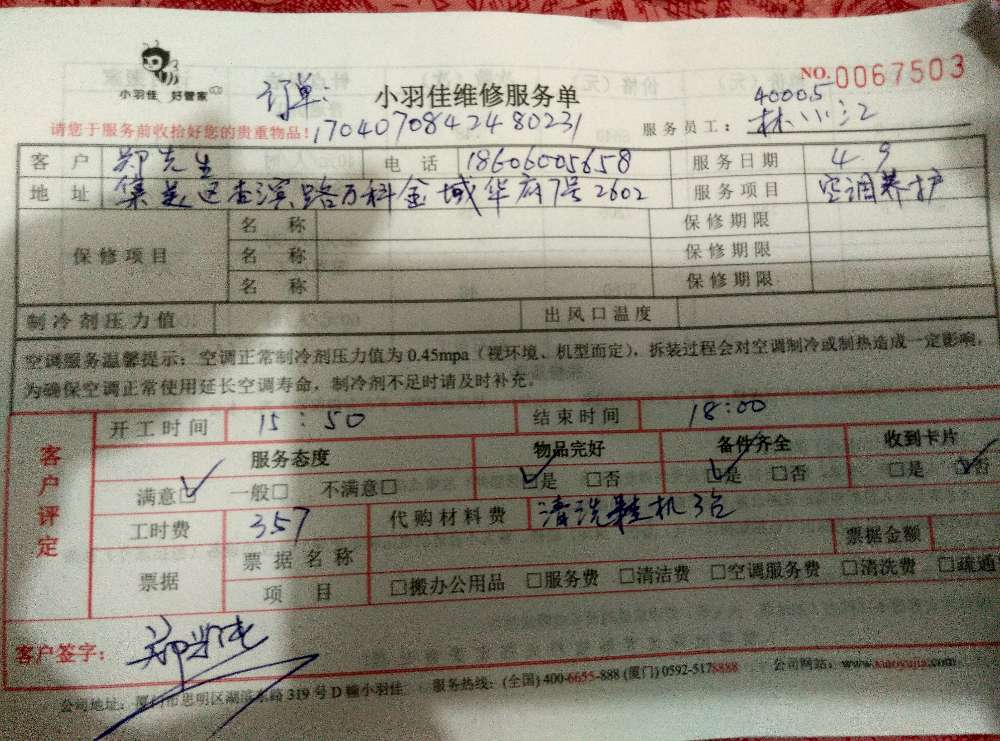 小羽佳 好管家
订单:
小羽佳维修服务单
NO.0067503
请您于服务前收拾好您的贵重物品!
17040708424480231
服务员工:
40005
林小江
客户 郑先生 电话 18606005658 服务日期 4.9
地址 集美区杏滨路万科金域华府7号2602 服务项目 空调养护
保修项目 名称 保修期限
名称 保修期限
名称 保修期限
制冷剂压力值 出风口温度
空调服务温馨提示:空调正常制冷剂压力值为0.45mpa(视环境、机型而定),拆装过程会对空调制冷或制热造成一定影响,
为确保空调正常使用延长空调寿命,制冷剂不足时请及时补充。
客户评定
开工时间 15:50 结束时间 18:00
服务态度 物品完好 备件齐全 收到卡片
满意☑ 一般□ 不满意□ ☑是 □否 ☑是 □否 □是 ☑否
工时费 357 代购材料费 清洗挂机3台
票据 票据名称 票据金额
项目 □搬办公用品 □服务费 □清洁费 □空调服务费 □清洗费 □疏通
客户签字:
公司地址:厦门市思明区湖滨东路319号D幢小羽佳 服务热线:(全国)400-6655-888 (厦门)0592-5178888 公司网站:www.xiaoyujia.com